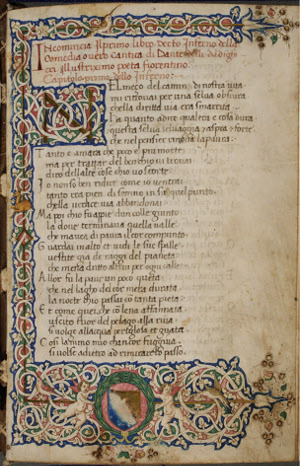 INcomincia il primo libro decto Inferno della
Comedia overo Cantica di Dante
illustrissimo poeta fiorentino.
Capitolo primo dello Inferno:
NEL meço del camin di nostra vita
mi ritrovai per una selva obscura
chella diritta via era smarrita
Ea quanto adire qualera e cosa dura
questa selva selvaggia et aspra et forte
che nel pensier rinova la paura:
Tanto e amara che poco e piu morte
ma per trattar del ben chio vi trovai
diro dellaltre cose chio vo scorte
Io non so ben ridire come io ventrai
tanto era pien di sonno in su quel punto
chella verace via abbandonai
Ma poi chio fu apie dun colle giunto
la dove terminava quella valle
che mavea di paura il cor compunto
Guardai inalto et vidi le sue spalle
vestite gia de raggi del pianeta
che mena dritto altrui per ogni calle
Allor fu la paura un poco queta
che nel lagho del cor mera durata
la nocte chio passai co tanta pieta
Et come quei che co lena affannata
uscito fuor del pelago alla riva
si volge allacqua perigliosa et guata
Cosi lanimo mio chancor fuggiva
si volse adietro ad rimirar lo passo